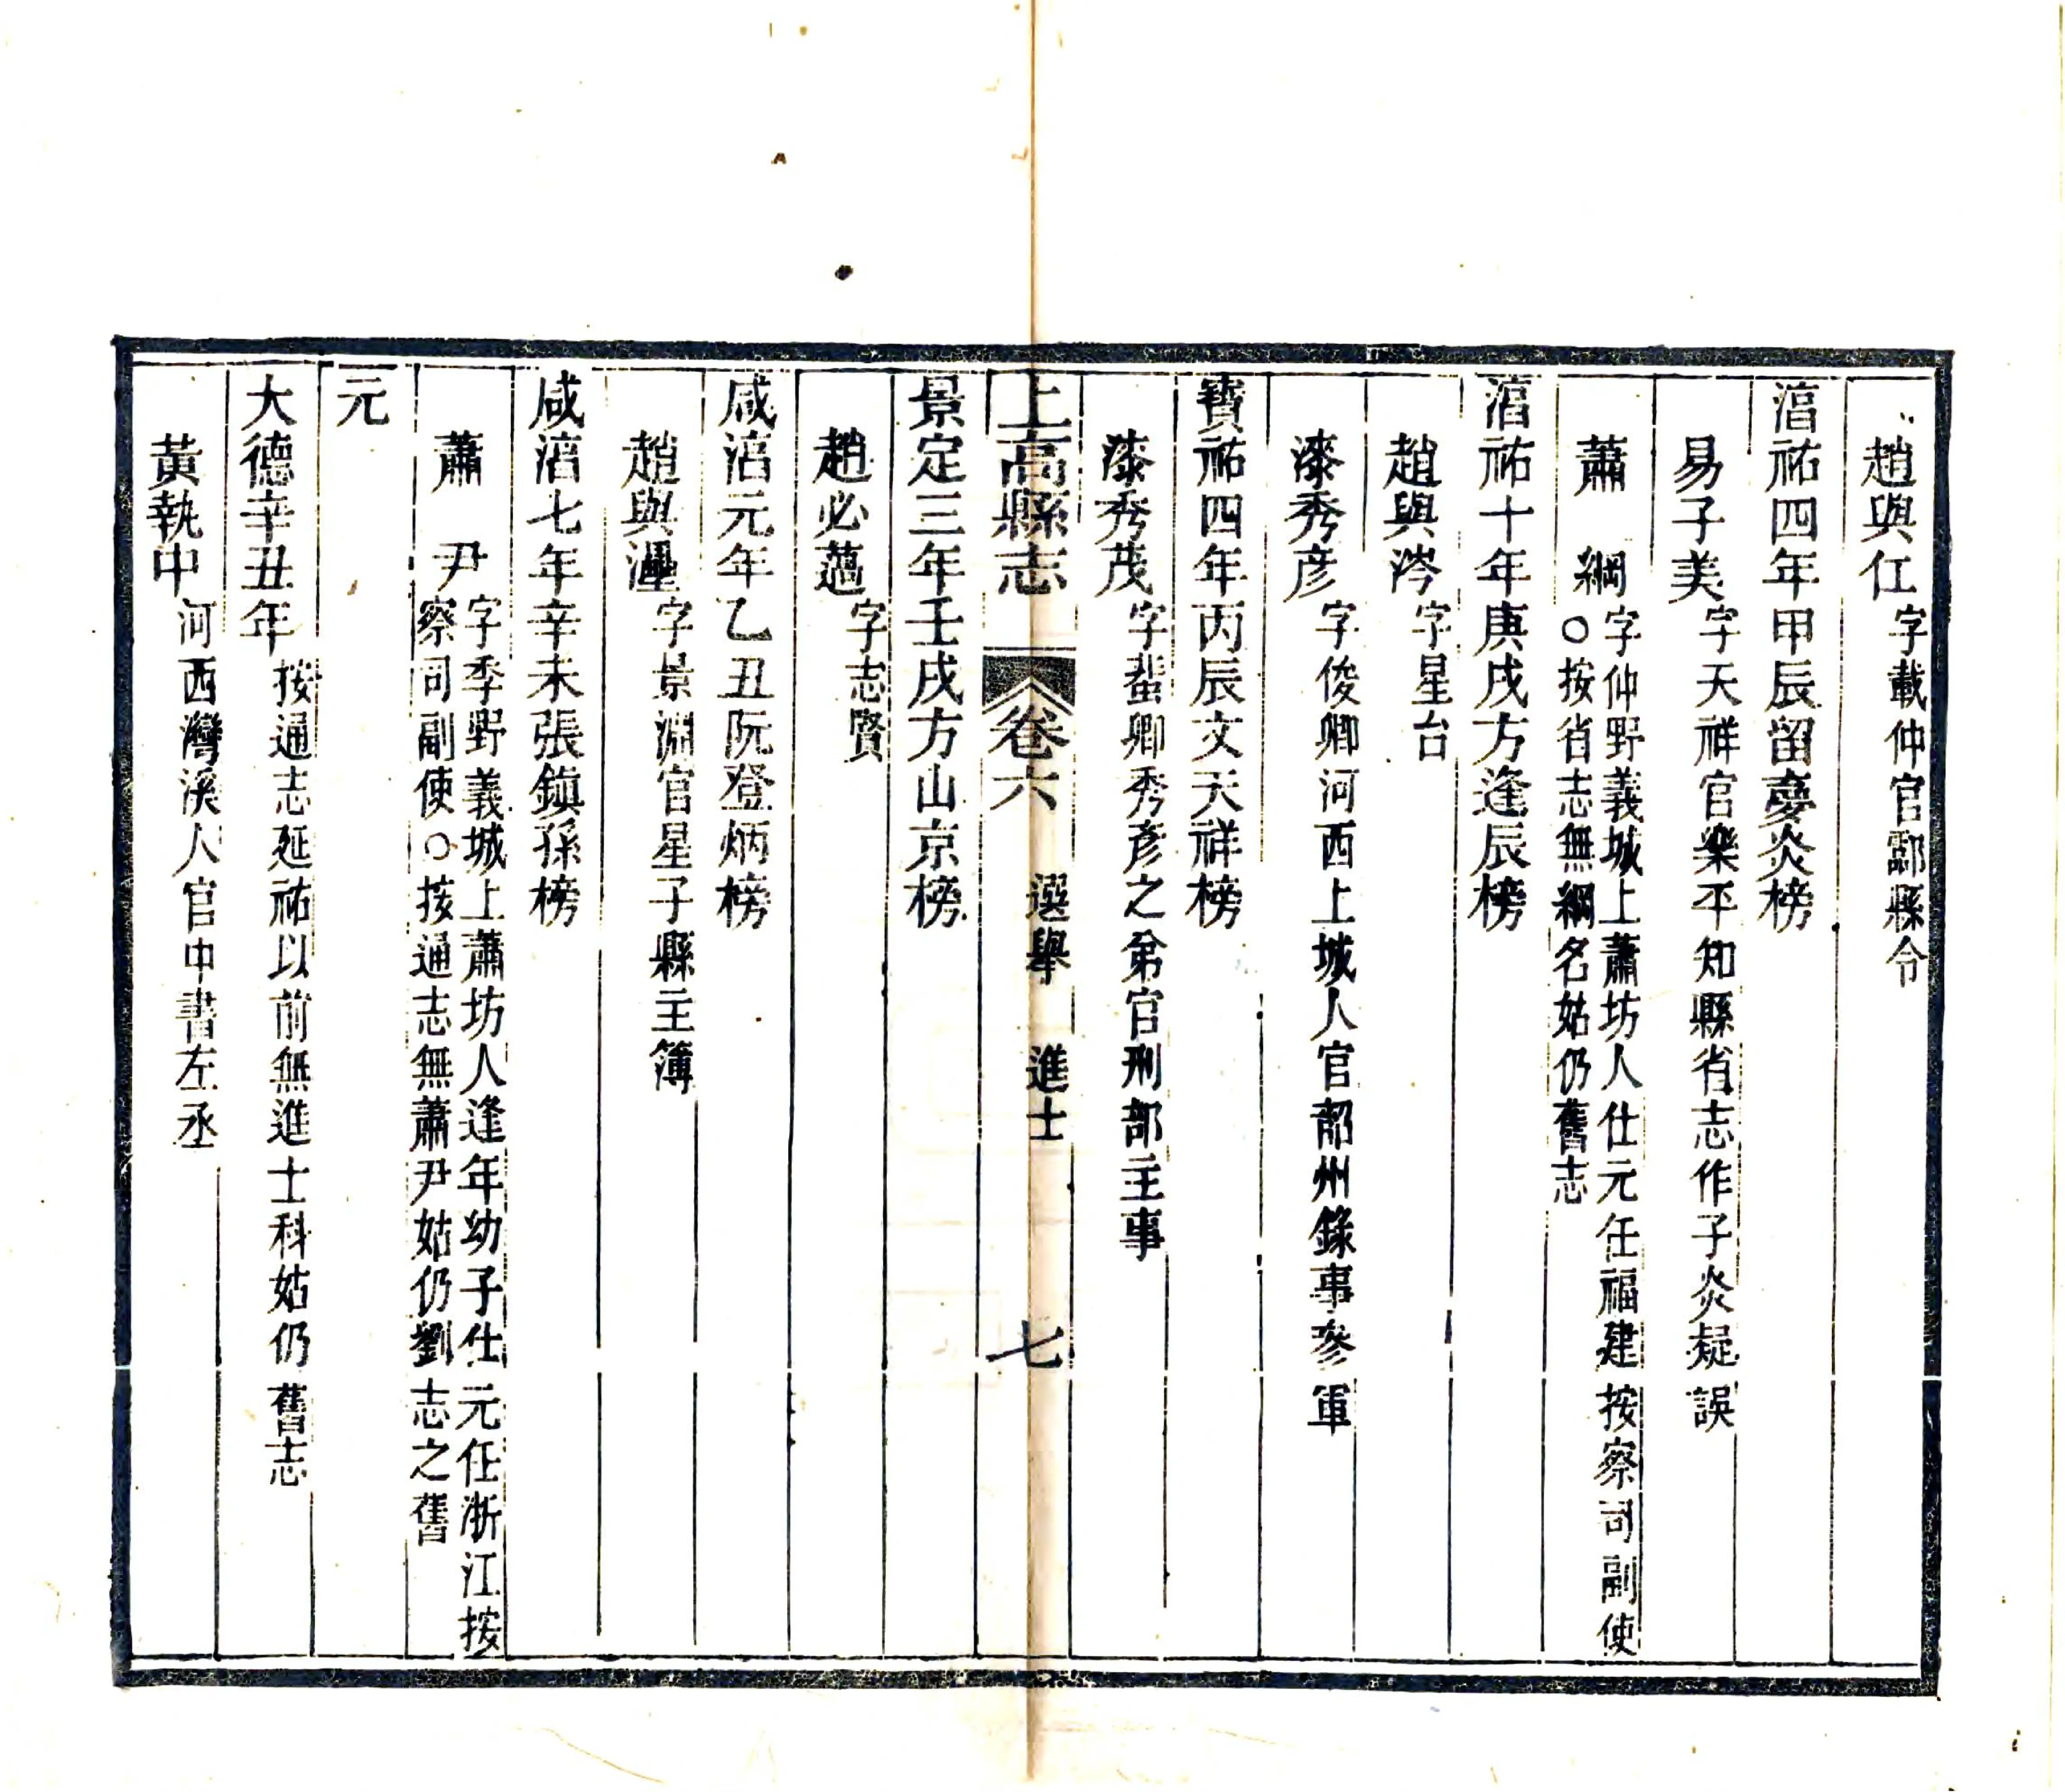 趙與仜字載仲官酃縣令
湻祐四年甲辰留夢炎榜
易子美字天祥官樂平知縣省志作子炎疑誤
蕭　綱字仲野義城上蕭坊人仕元任福建按察司副使
○按省志無綱名姑仍舊志
湻祐十年庚戌方逢辰榜
趙與涔字星台
漆秀彦字俊卿河西上城人官韶州錄事參軍
寶祐四年丙辰文天祥榜
漆秀茂字蜚卿秀彦之弟官刑部主事
上高縣志　卷六　選舉　進士　七
景定三年壬戌方山京榜
趙必薖字志賢
咸湻元年乙丑阮登炳榜
趙與字景淵官星子縣主簿
咸湻七年辛未張鎮孫榜
蕭　尹字季野義城上蕭坊人逢年幼子仕元任浙江按
察司副使○按通志無蕭尹姑仍劉志之舊
元
大德辛丑年按通志延祐以前無進士科姑仍舊志
黃執中河西灣溪人官中書左丞